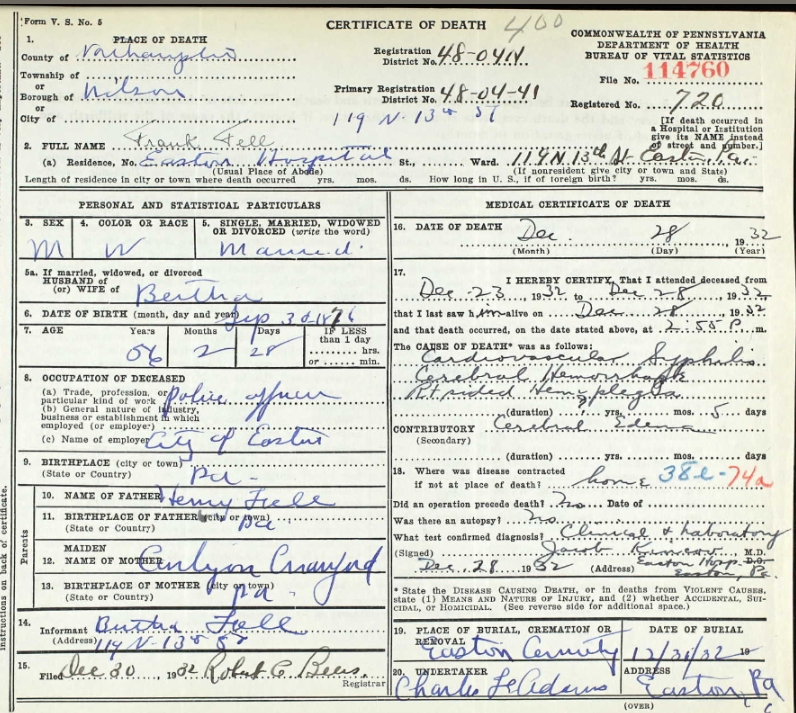 Form V. S. No. 5
CERTIFICATE OF DEATH 400
COMMONWEALTH OF PENNSYLVANIA
DEPARTMENT OF HEALTH
BUREAU OF VITAL STATISTICS
1. PLACE OF DEATH
County of Northampton
Township of
or
Borough of Wilson
or
City of
Registration District No. 48-04N
Primary Registration District No. 48-04-41
119 N. 13th St
File No. 114760
Registered No. 720
[If death occurred in a Hospital or Institution give its NAME instead of street and number.]
2. FULL NAME Frank Fell
(a) Residence, No. Easton Hospital St., Ward. 119 N 13th St Easton, Pa.
(Usual Place of Abode) (If nonresident give city or town and State)
Length of residence in city or town where death occurred yrs. mos. ds. How long in U. S., if of foreign birth? yrs. mos. ds.
PERSONAL AND STATISTICAL PARTICULARS
3. SEX M
4. COLOR OR RACE W
5. SINGLE, MARRIED, WIDOWED OR DIVORCED (write the word) Married.
5a. If married, widowed, or divorced
HUSBAND of
(or) WIFE of Bertha
6. DATE OF BIRTH (month, day and year) Sep 30-1876
7. AGE Years 56 Months 2 Days 28 If LESS than 1 day hrs. or min.
8. OCCUPATION OF DECEASED
(a) Trade, profession, or particular kind of work Police officer
(b) General nature of industry, business or establishment in which employed (or employer)
(c) Name of employer City of Easton
9. BIRTHPLACE (city or town)
(State or Country) Pa-
Parents
10. NAME OF FATHER Henry Fell
11. BIRTHPLACE OF FATHER (city or town)
(State or Country) Pa
12. MAIDEN NAME OF MOTHER Crawford
13. BIRTHPLACE OF MOTHER (city or town)
(State or Country) Pa-
14. Informant Bertha Fell
(Address) 119 N-13th St
15. Filed Dec 30 1932 Robert C Beers
Registrar
MEDICAL CERTIFICATE OF DEATH
16. DATE OF DEATH Dec. 28 1932
(Month) (Day) (Year)
17. I HEREBY CERTIFY, That I attended deceased from
Dec-23, 1932 to Dec 28, 1932
that I last saw him alive on Dec 28, 1932
and that death occurred, on the date stated above, at 2.55 P m.
The CAUSE OF DEATH* was as follows:
Cardiovascular Syphilis
Cerebral Hemorrhage
Rt sided Hemiplegia
(duration) ? yrs. mos. 5 days
CONTRIBUTORY Cerebral Edema
(Secondary)
(duration) yrs. mos. days
18. Where was disease contracted
if not at place of death? home 38e-74a
Did an operation precede death? No Date of
Was there an autopsy? No.
What test confirmed diagnosis? Clinical & Laboratory
(Signed) Jacob, M.D.
Dec. 28 1932 (Address) Easton Hosp. D.O.
Easton, Pa.
* State the DISEASE CAUSING DEATH, or in deaths from VIOLENT CAUSES, state (1) MEANS AND NATURE OF INJURY, and (2) whether ACCIDENTAL, SUICIDAL, or HOMICIDAL. (See reverse side for additional space.)
19. PLACE OF BURIAL, CREMATION OR REMOVAL Easton Cemetery
DATE OF BURIAL 12/31/32 19
20. UNDERTAKER Charles Le Adams
ADDRESS Easton, Pa
(OVER)
instructions on back of certificate.